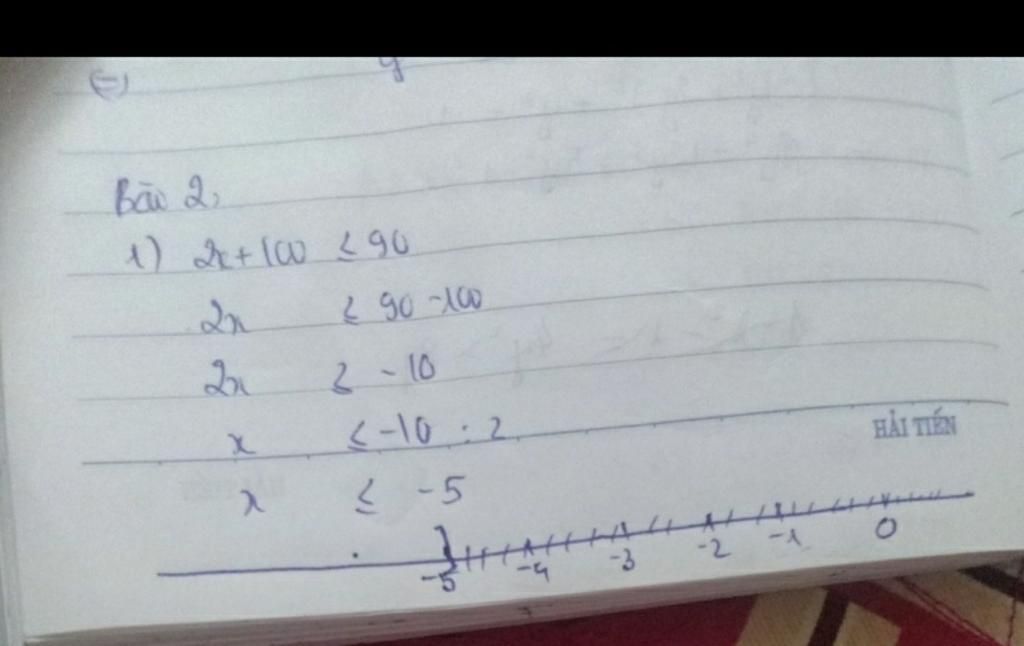 (=) y
Bài 2,
1) 2x+100 ≤ 90
2x ≤ 90 -100
2x ≤ -10
x ≤ -10 : 2
HẢI TIẾN
x ≤ -5
]
-5 -4 -3 -2 -1 0